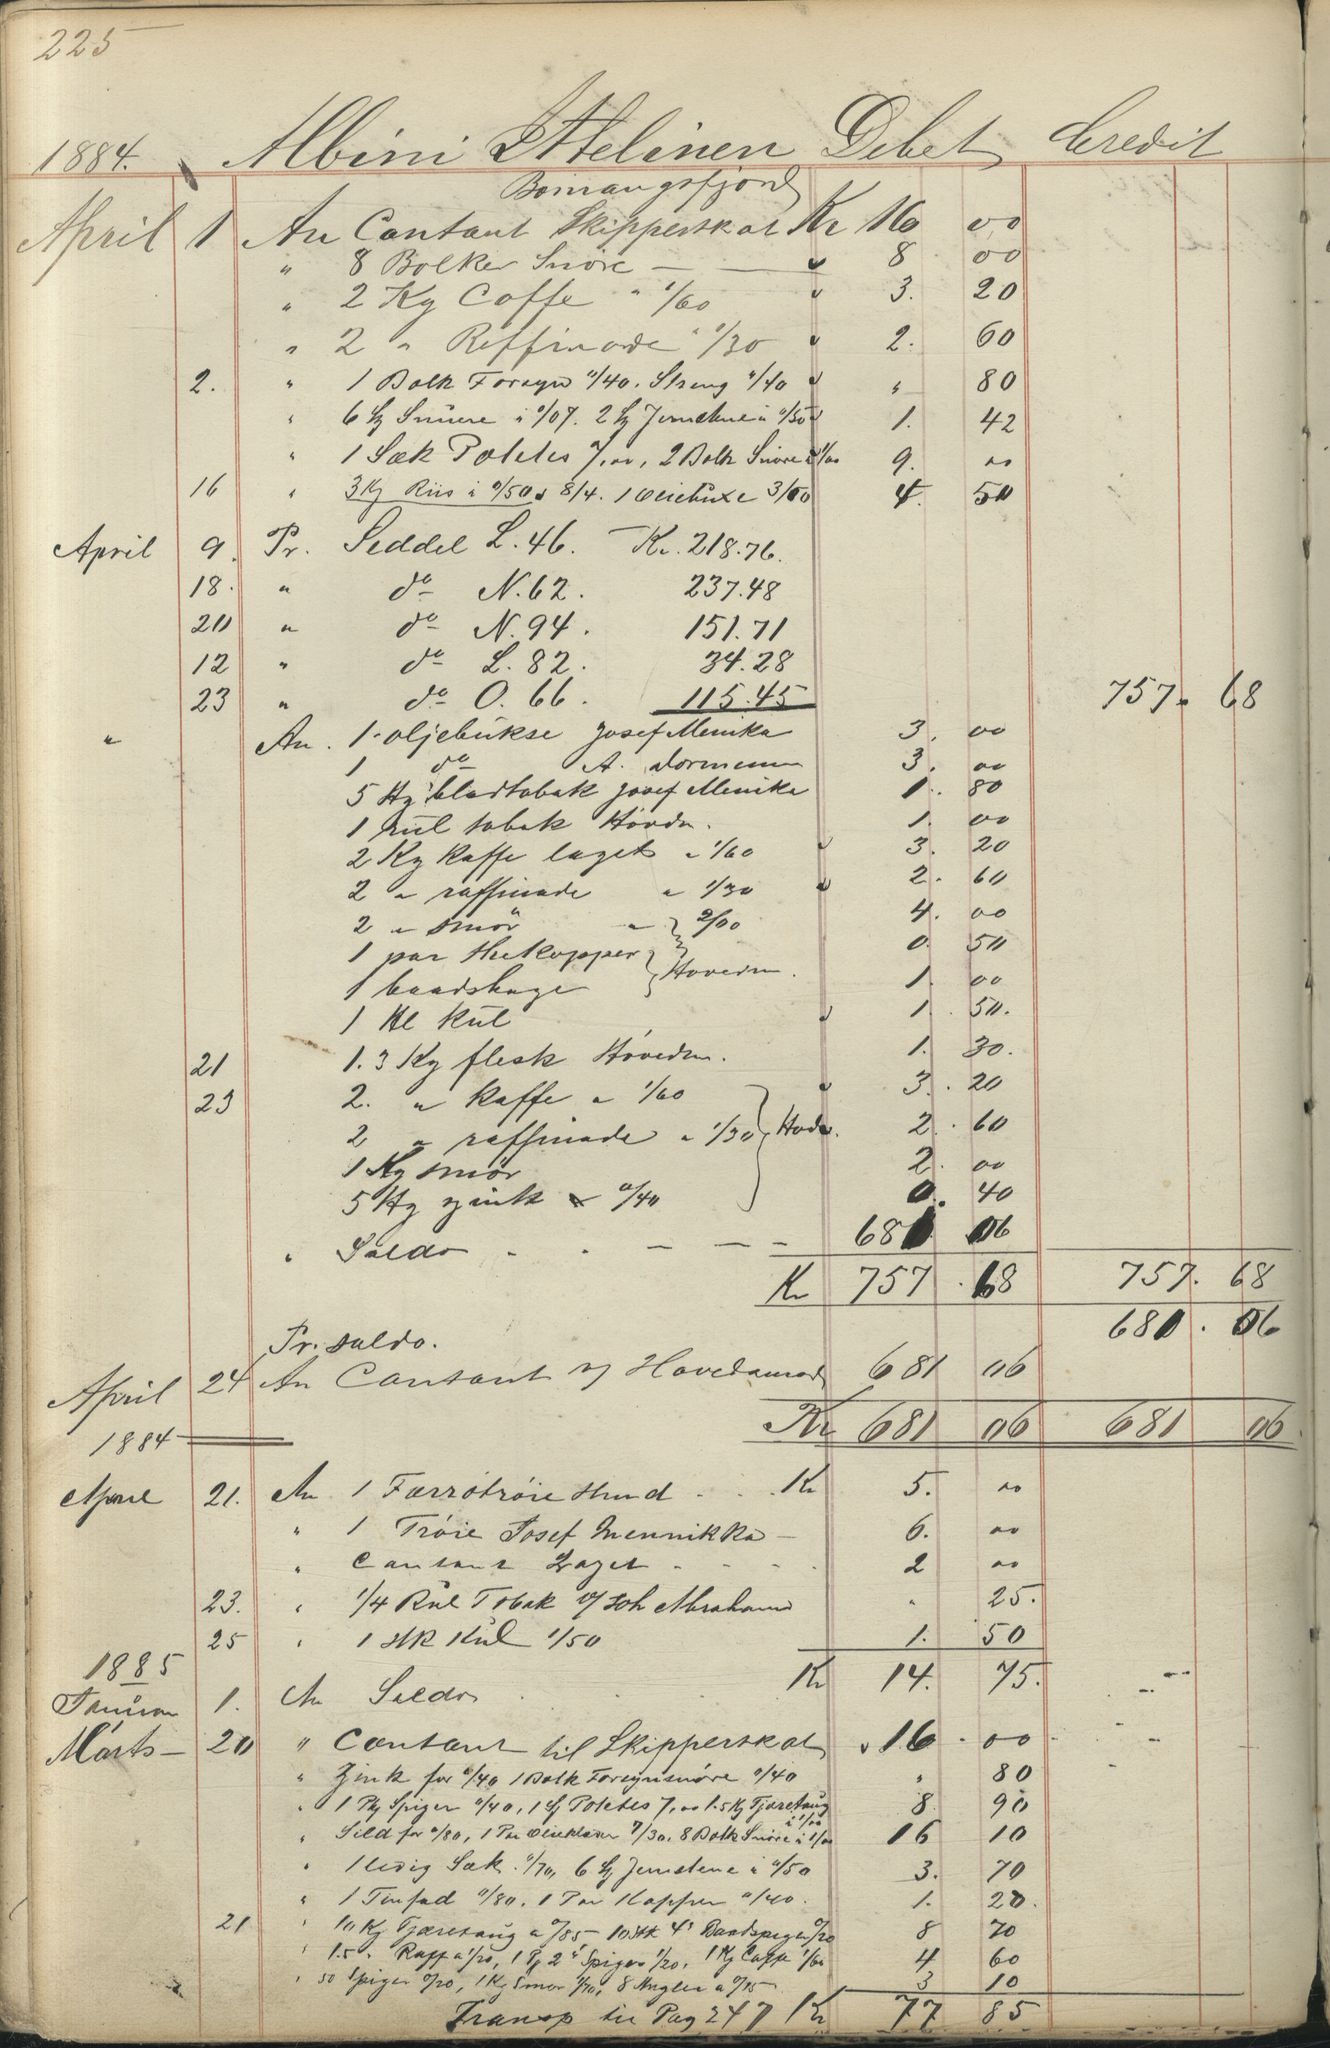 225
1884. Albini Debet Credit
April 1 An Contant Skipperskat Kr 16 00
" 8 Bolker Snöre — 8 00
" 2 Kg Coffe " 1/60 " 3. 20
" 2 " Reffinade " 1/30 " 2. 60
2. " 1 Bolk Forsyn "/40. Streng "/40 " " 80
" 6 0/07. 2 0/50 1. 42
" 1 Sæk Potetes 7,00, 2 Bolk Snöre a 1/00 9. 00
16 " 3 Kg Riis a 0/50 8/4. 1 3/00 4. 50
April 9. Pr. Seddel L. 46. Kr. 218.76.
18. " do N. 62. 237.48
20 " do N. 94. 151.71
12 " do L. 82. 34.28
23 " do O. 66. 115.45 757. 68
" An. 1 oljebukse Josef Menika 3. 00
1 do A. 3. 00
5 Hg bladtobak Josef Menika 1. 80
1 rul tobak 1. 00
2 Kg kaffe laget " 1/60 " 3. 20
2 " raffinade " 1/30 " 2. 60
2 " smör " 2/00 4. 00
1 par thekopper 0. 50
1 baadshage 1. 00
1 Hl kul " 1. 50.
21 1.3 Kg flesk 1. 30.
23 2. " kaffe " 1/60 " 3. 20
2 " raffinade " 1/30 2. 60
1 Kg smör 2. 00
5 Hg zink 0/40 0. 40
" Saldo 681 06
Kr 757. 68 757. 68
Pr. saldo. 681. 06
April 24 An Contant v/ 681 06
1884 Kr 681 06 681 06
April 21. An 1 Kr 5. 00
" 1 Tröie Josef Mennikka — 6. 00
" Contant Laget 2 00
23. " 1/4 Rul Tobak v/ Joh " 25.
25 " 1 Kul 1/50 1. 50
1885 Kr 14. 75.
1. An Saldo
Marts — 20 " Contant til Skipperskat " 16. 00
" Zink for "/40 1 Bolk Forsynsnöre "/40 " 80
" 1 Spiger "/40, 1 Potetes 7,00 1.5 Kg Tjæretaug a 1/00 8 90
" Sild for "/80, 1 Par 7/30. 8 Bolk Snöre a 1/00 16 10
" 1 ledig Sæk "/70, 6 a "/50 3. 70
" 1 Tinfad "/80. 1 Par Kopper "/40. 1. 20.
21 " 10 Kg Tjæretaug a 0/85 10 Stk 4" Baadspiger 0/20 8 70
" 1.5 " Raff a 1/20, 1 2" Spiger 1/20, 1 Kg Caffe 1/60 4 60
" 50 Spiger 0/20, 1 Kg Smör 1/70, 8 Angler a 0/15 3 10
Transp til Pag 247 Kr 77 85